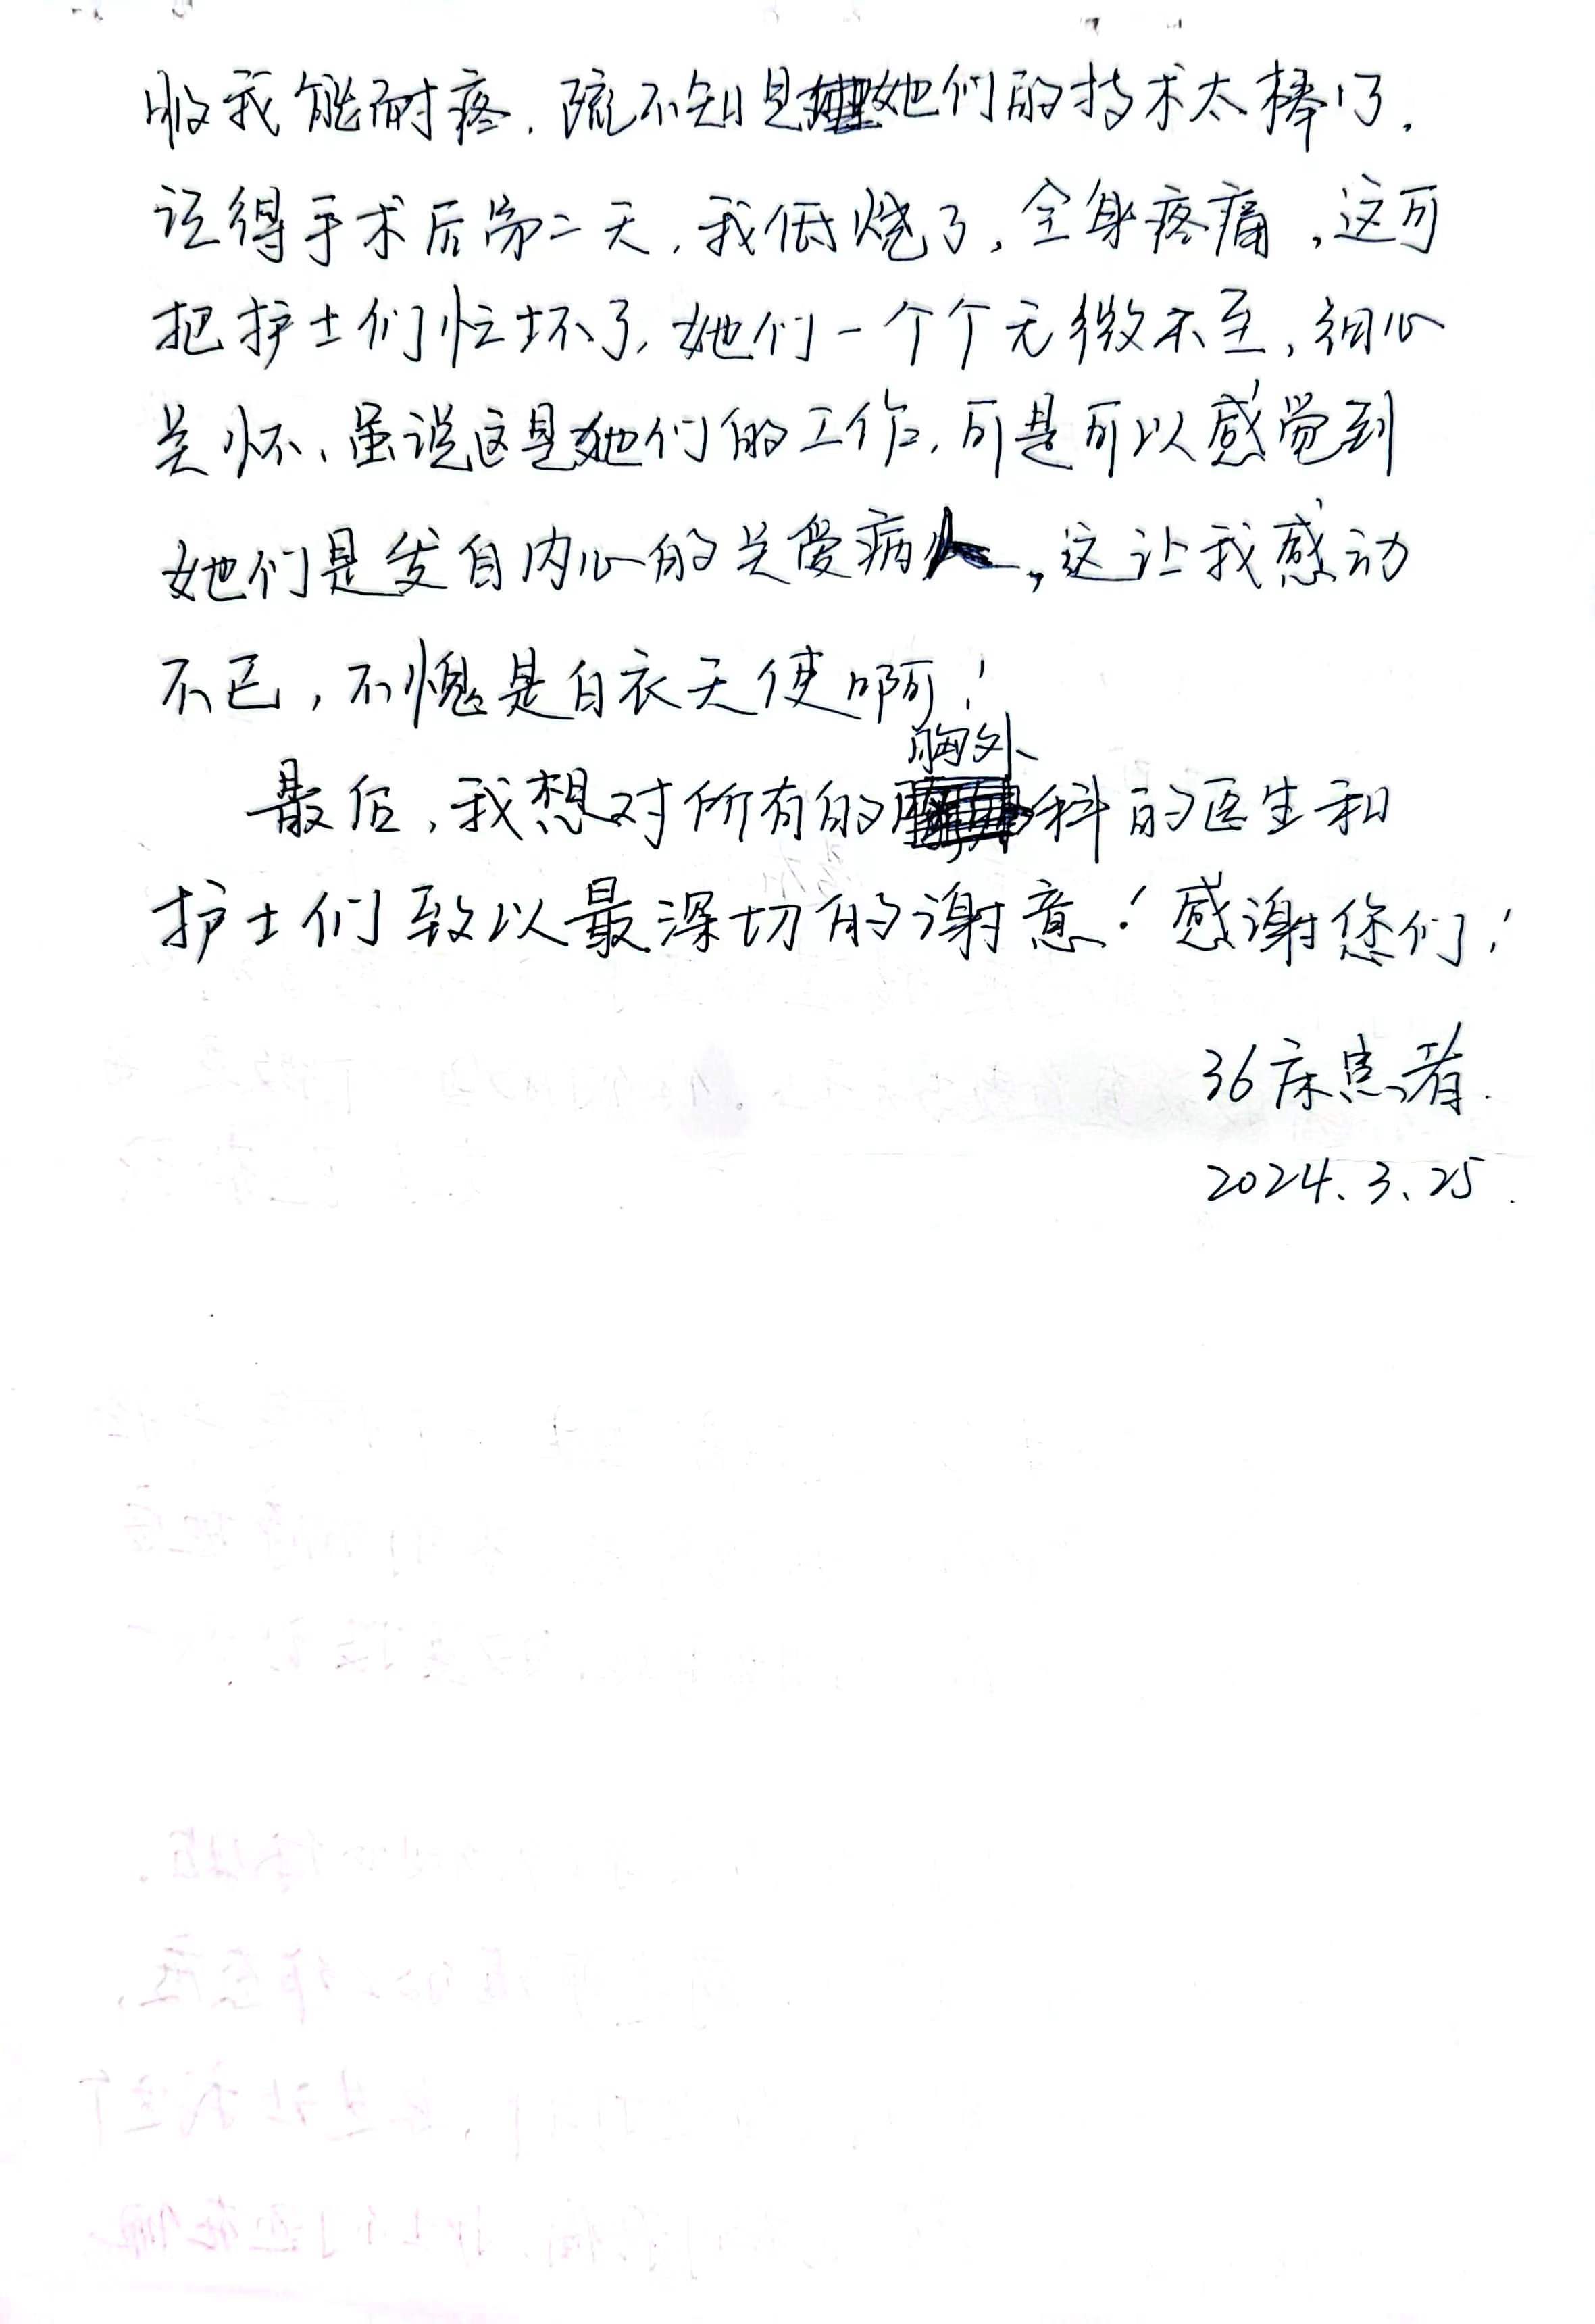 服我能耐疼，疏不知是她们的技术太棒了，
记得手术后第二天，我低烧了，全身疼痛，这可
把护士们忙坏了，她们一个个无微不至，细心
关怀、虽说这是她们的工作，可是可以感觉到
她们是发自内心的关爱病人，这让我感动
不已，不愧是白衣天使啊！
最后，我想对所有的胸外科的医生和
护士们致以最深切的谢意！感谢您们！
36床患者.
2024.3.25.